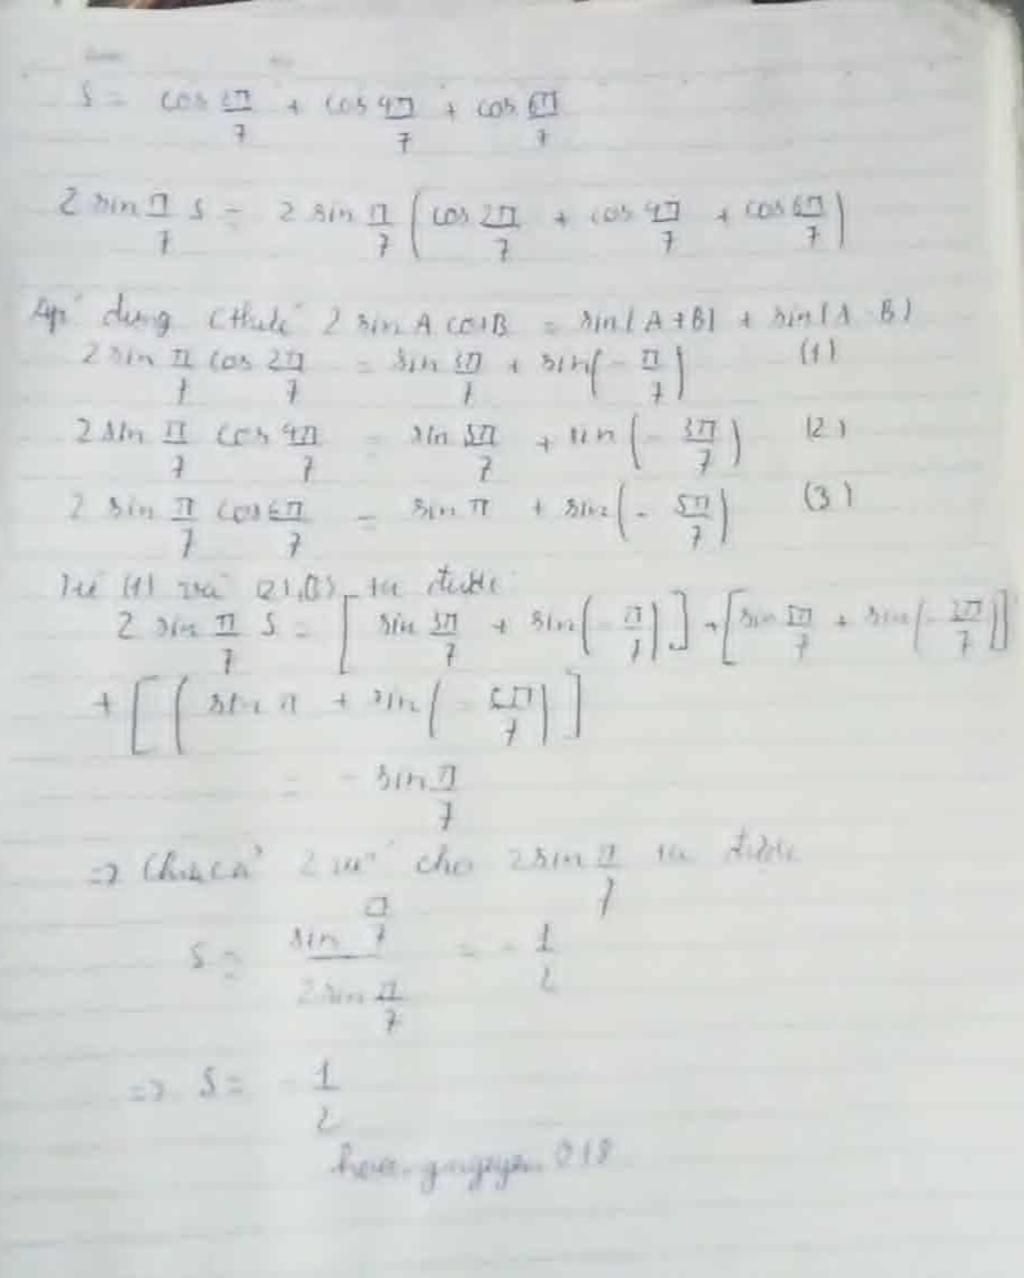 S = cos 2π/7 + cos 4π/7 + cos 6π/7
2 sin π/7 S = 2 sin π/7 (cos 2π/7 + cos 4π/7 + cos 6π/7)
Áp dụng cthức 2 sin A cos B = sin(A+B) + sin(A-B)
2 sin π/7 cos 2π/7 = sin 3π/7 + sin(-π/7) (1)
2 sin π/7 cos 4π/7 = sin 5π/7 + sin(-3π/7) (2)
2 sin π/7 cos 6π/7 = sin π + sin(-5π/7) (3)
Từ (1) và (2),(3) ta được
2 sin π/7 S = [sin 3π/7 + sin(-π/7)] + [sin 5π/7 + sin(-3π/7)]
+ [(sin π + sin(-5π/7)]
= - sin π/7
=> Chia cả 2 vế cho 2 sin π/7 ta được
S = sin π/7 / 2 sin π/7 = - 1/2
=> S = - 1/2